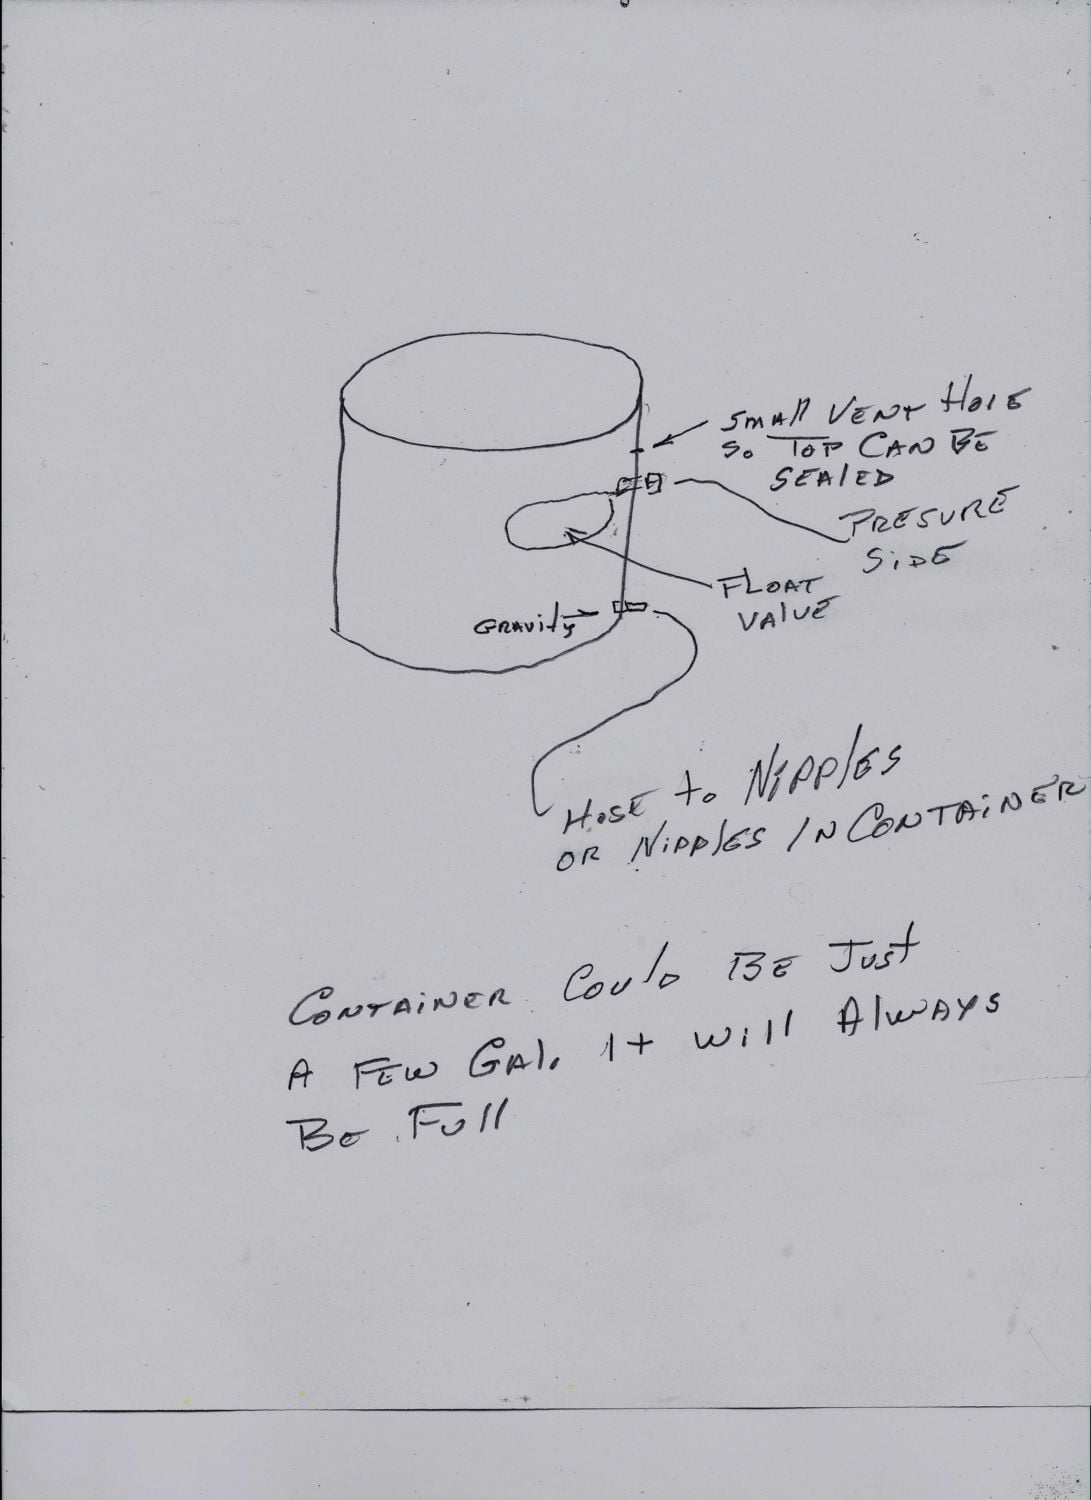 Small Vent Hole
So Top Can Be
Sealed
Presure
Side
Float
Value
Gravity
Hose to Nipples
or Nipples in Container
Container Could Be Just
A Few Gal. It will Always
Be Full